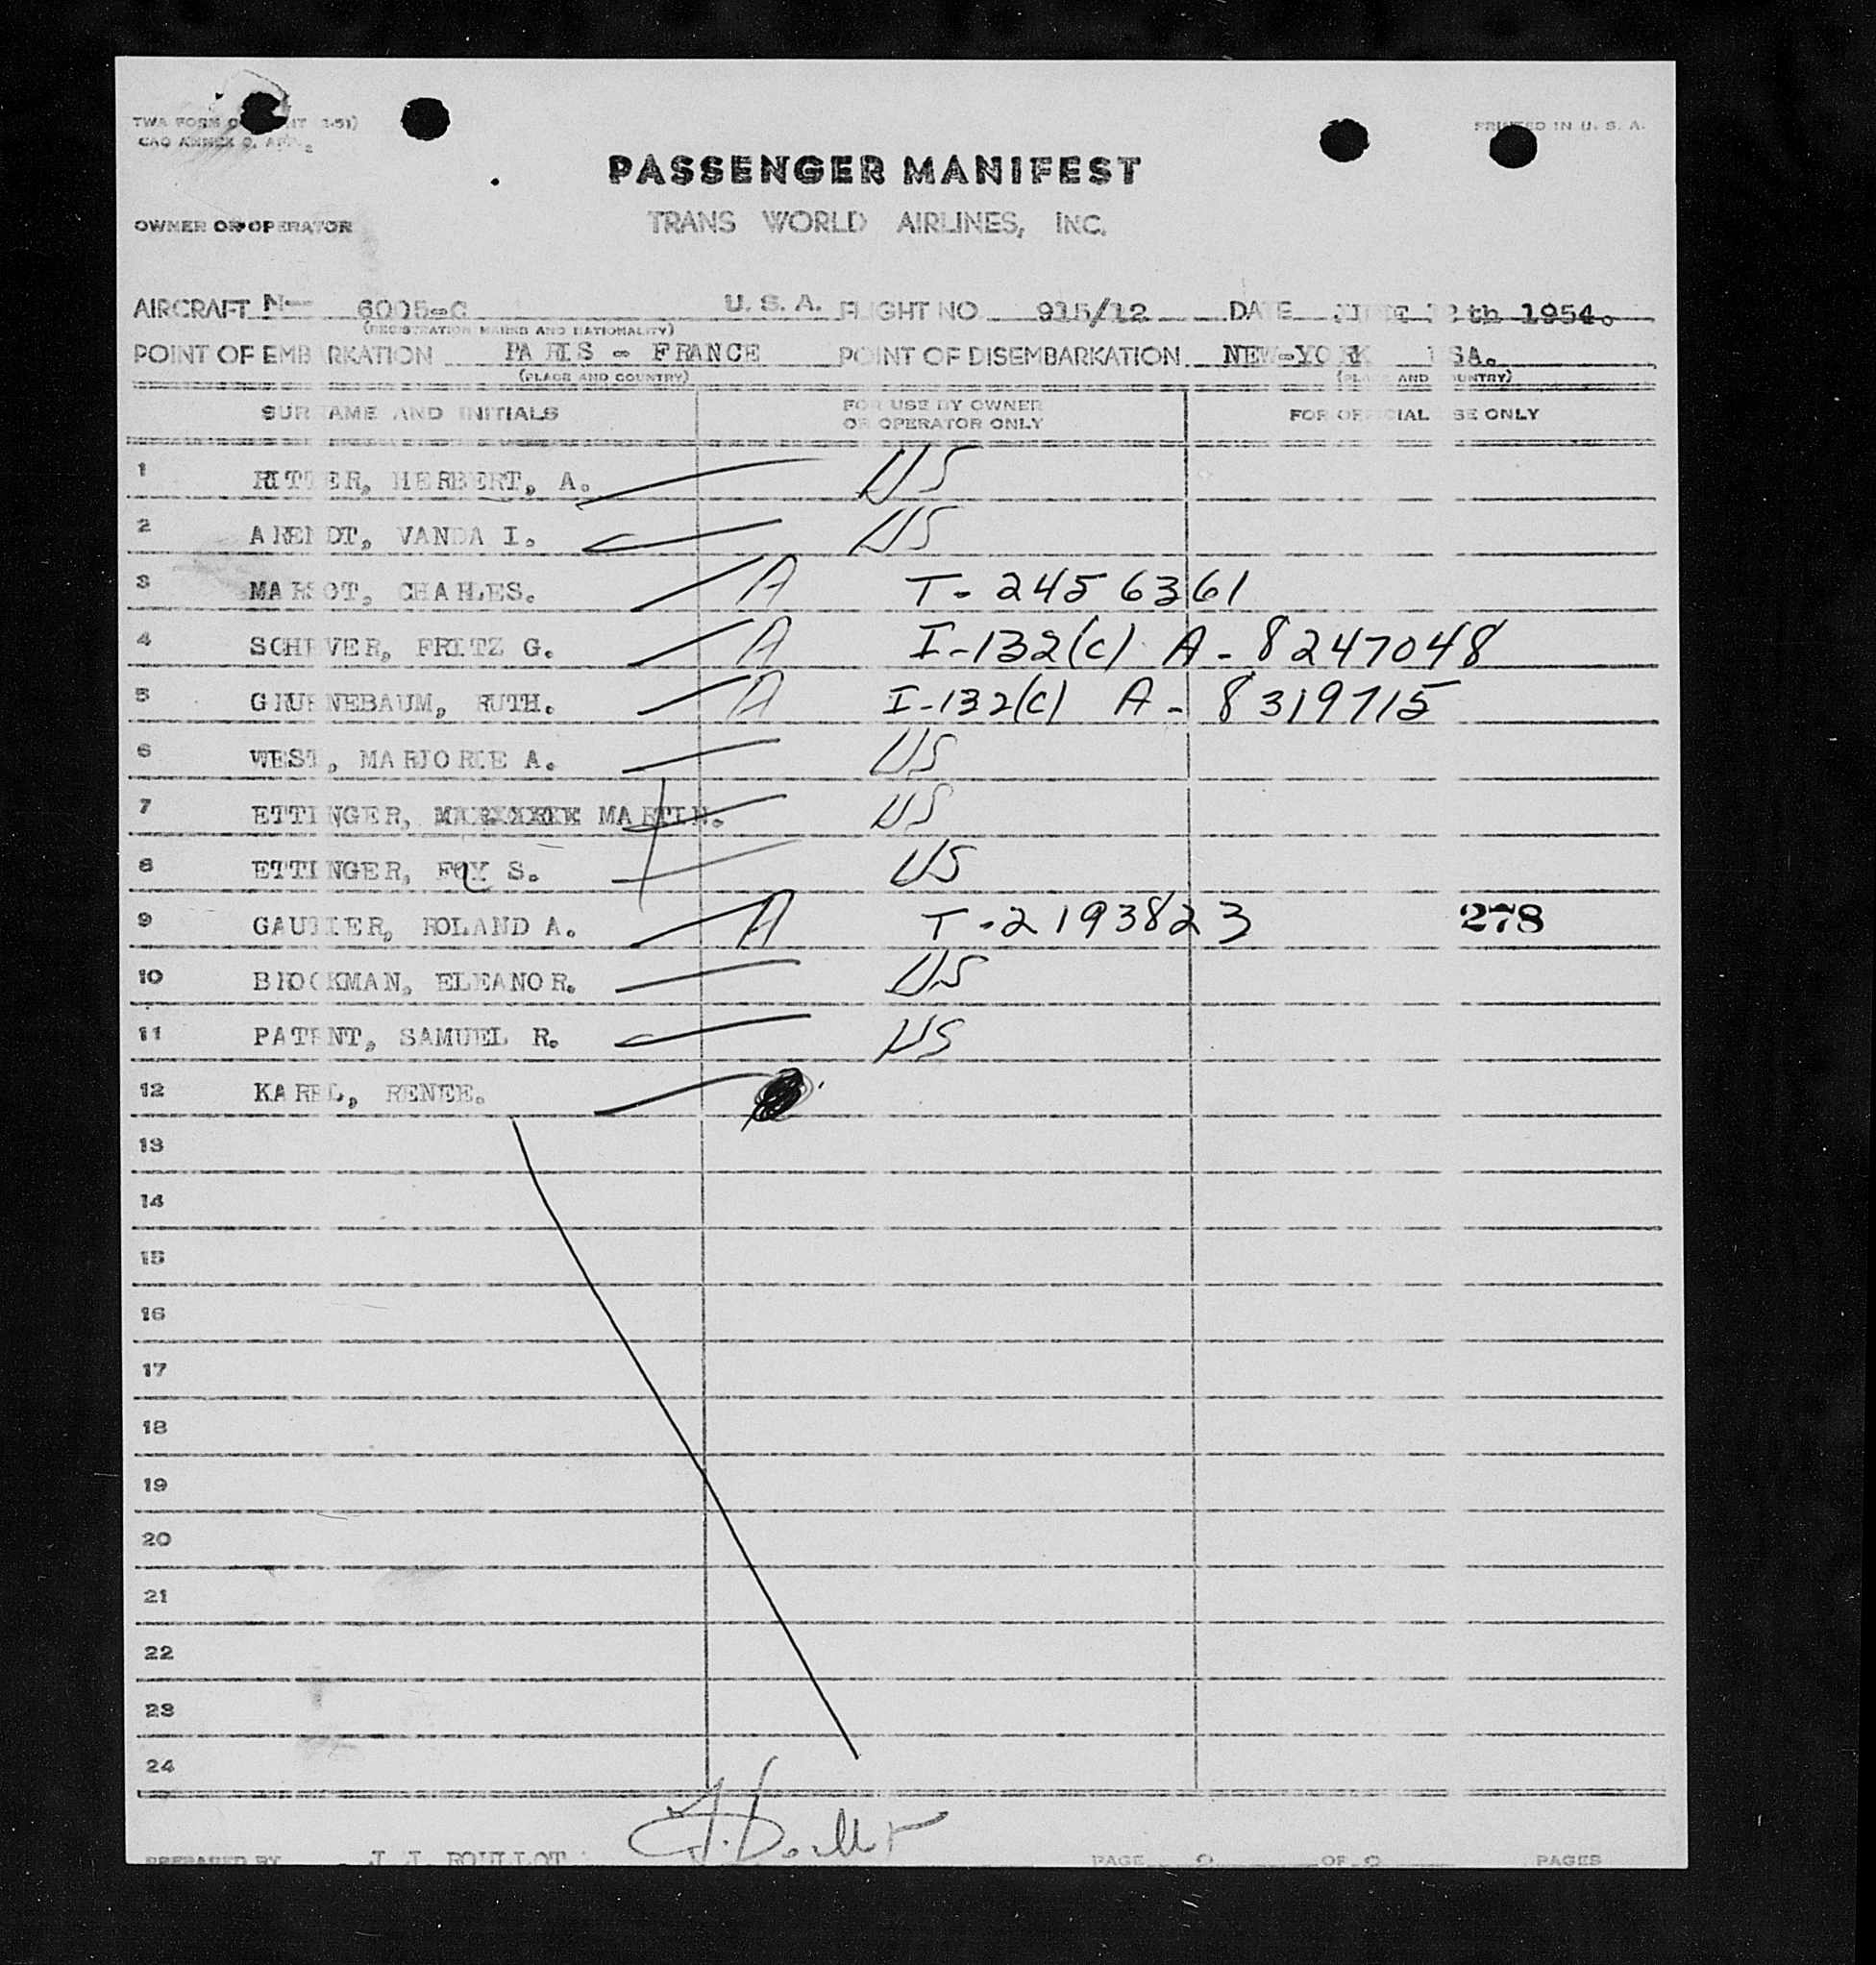 TWA FORM
PRINTED IN U. S. A.
PASSENGER MANIFEST
OWNER OR OPERATOR TRANS WORLD AIRLINES, INC.
AIRCRAFT N- 6005-C U. S. A. FLIGHT NO 915/12 DATE JUNE th 1954.
(REGISTRATION MARKS AND NATIONALITY)
POINT OF EMBARKATION PARIS - FRANCE POINT OF DISEMBARKATION NEW-YORK USA.
(PLACE AND COUNTRY) (PLACE AND COUNTRY)
SURNAME AND INITIALS FOR USE BY OWNER OR OPERATOR ONLY FOR OFFICIAL USE ONLY
1 RITTER, HERBERT, A. US
2 ARENDT, VANDA I. US
3 CHARLES. A T-2456361
4 FRITZ G. A I-132(C) A-8247048
5 GRUENEBAUM, RUTH. A I-132(C) A-8319715
6 WEST, MARJORIE A. US
7 ETTINGER, MARTIN. US
8 ETTINGER, S. US
9 GAUTIER, ROLAND A. A T-2193823 278
10 BROCKMAN, ELEANOR. US
11 PATENT, SAMUEL R. US
12 RENEE.
13
14
15
16
17
18
19
20
21
22
23
24
PREPARED BY PAGE OF PAGES